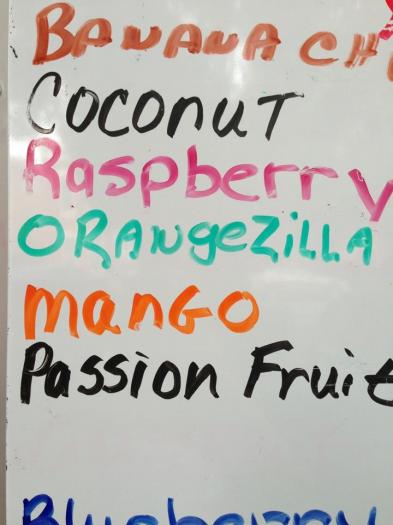 BANANA CH
Coconut
Raspberry
ORANgeZiLLA
manGo
Passion Fruit
Blueberry